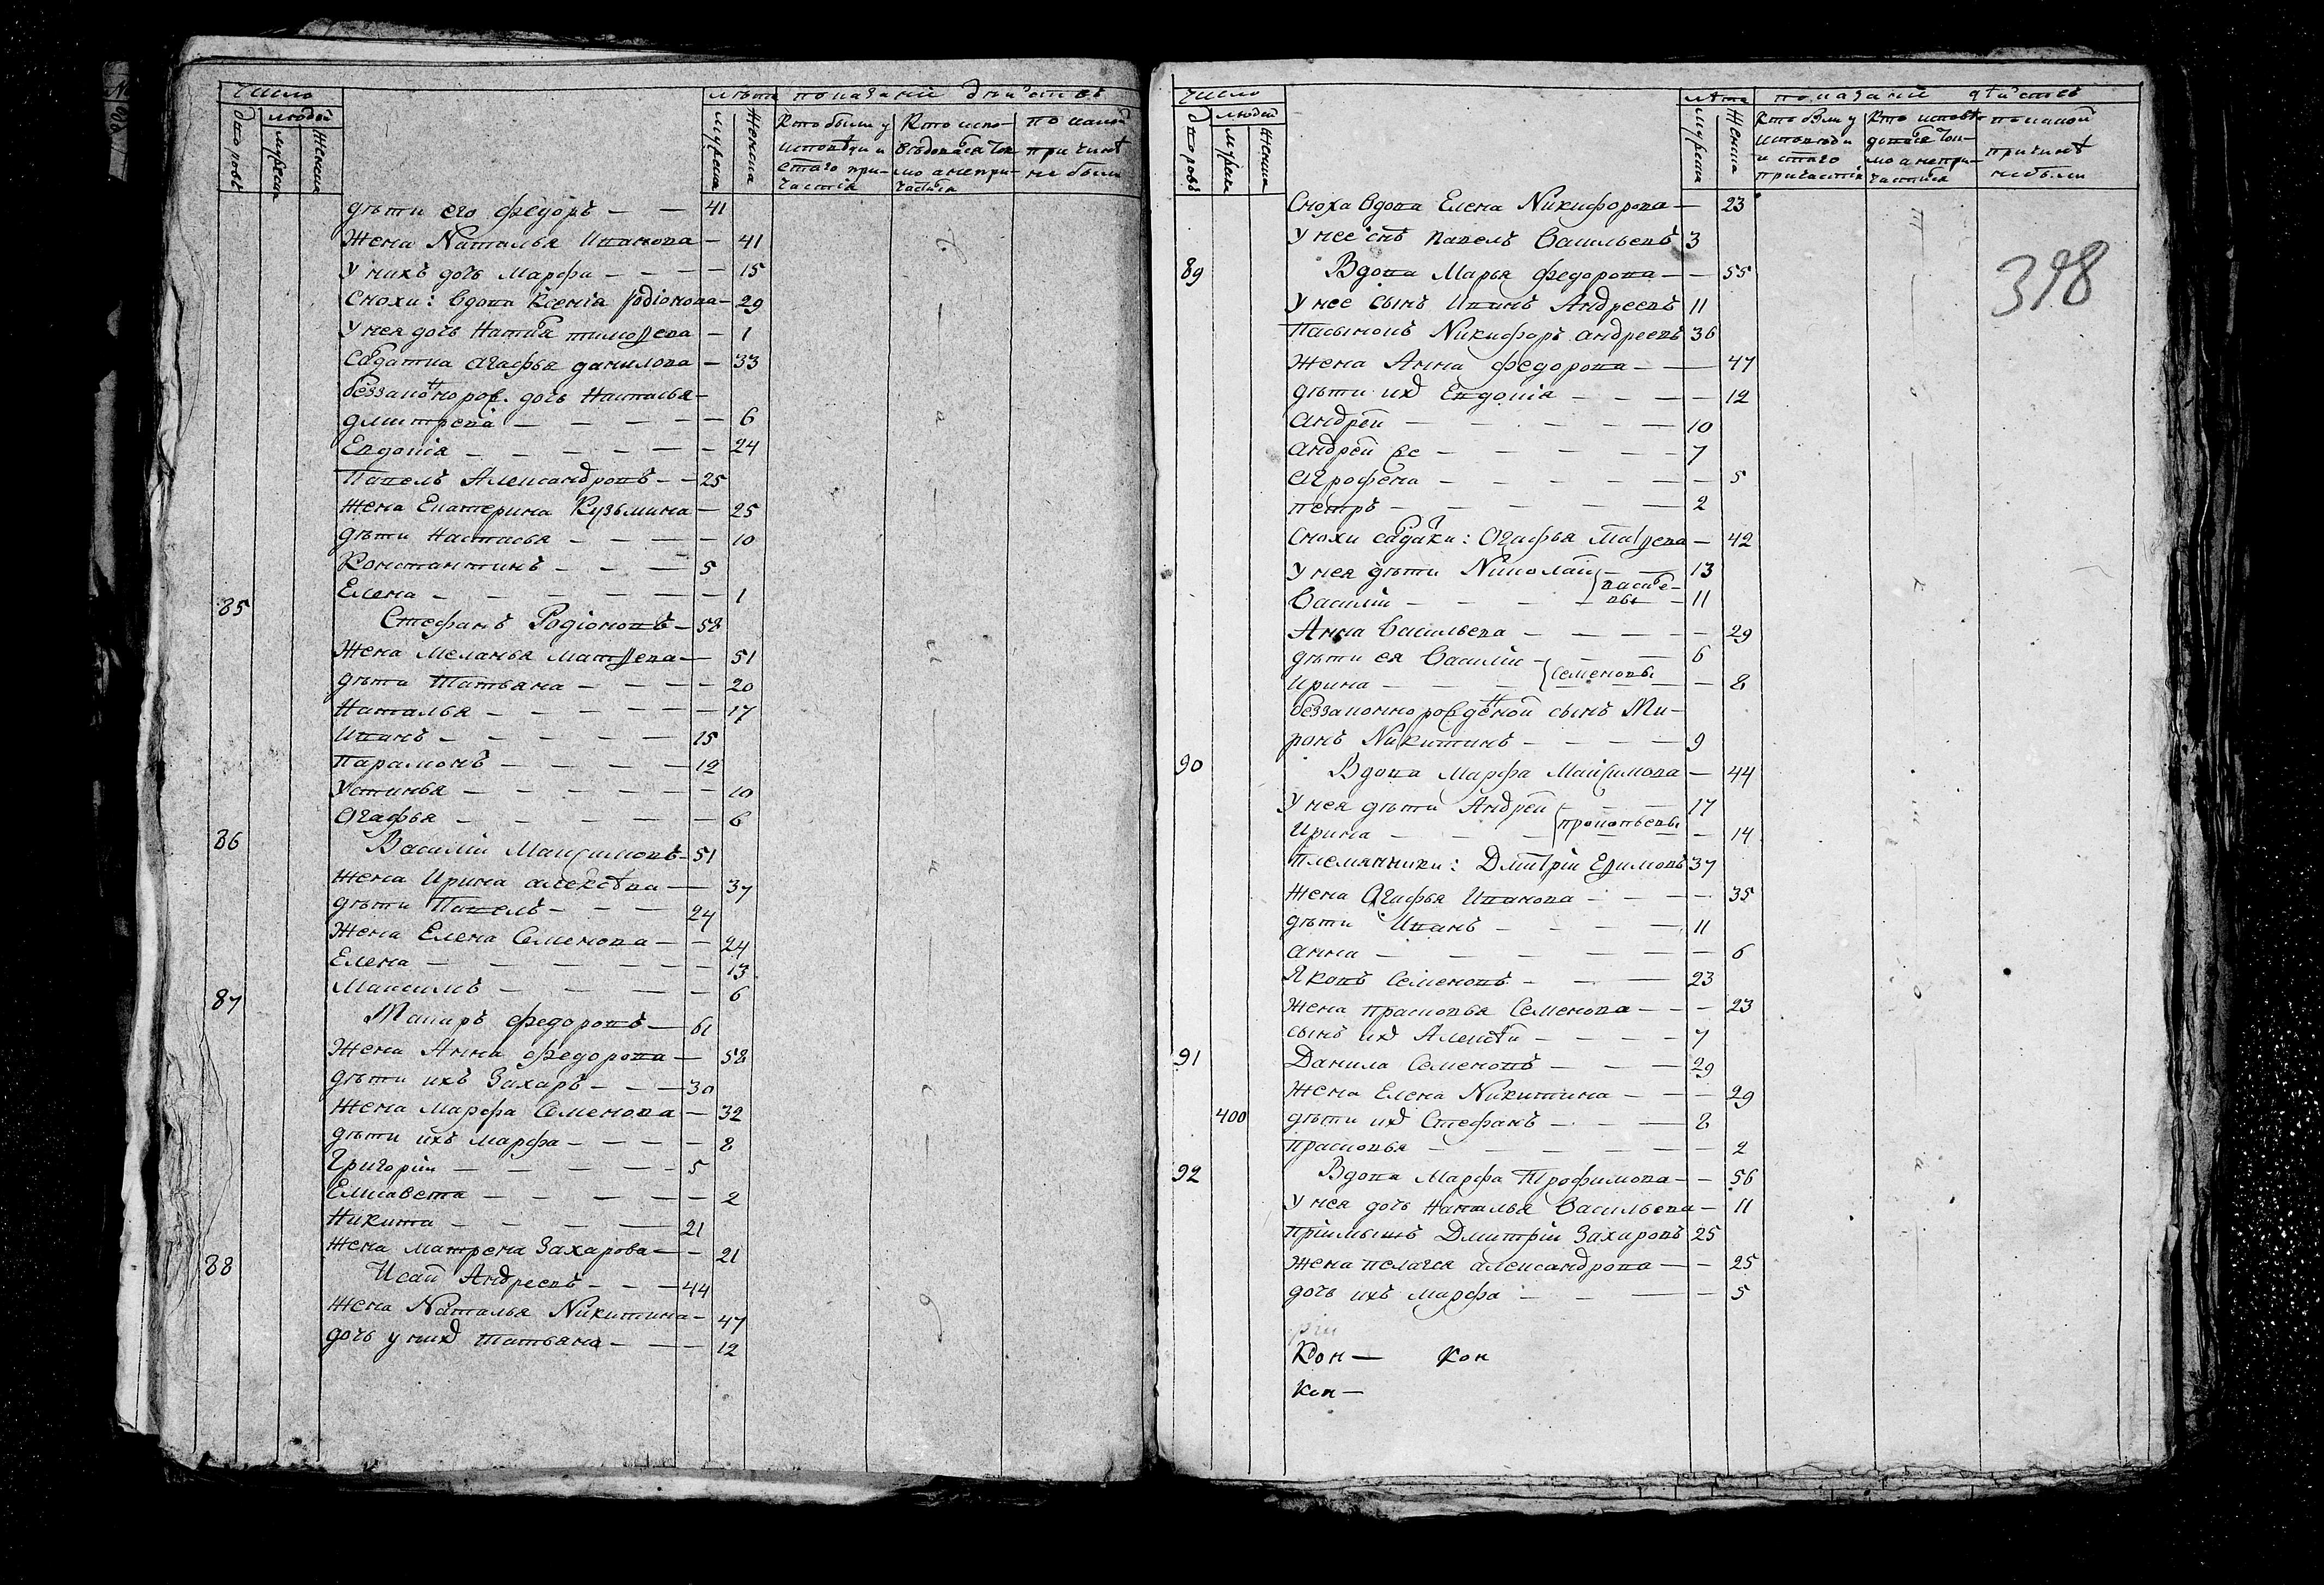 Число
людей
дворовъ
мужска
женска
лѣта
мужска
женска
показаніи дѣиствъ
Кто были у исповѣди и с҃таго при- частія
Кто испо- вѣдовался токмо а не при- частился
по какой причинѣ не были
дѣти его Федоръ — — 41
Жена Наталья Иванова — 41
у нихъ дочь Марфа — — — — 15
Снохи: вдова Ксенія Родіонова — 29
у нея дочь Наталья Тимоѳеева — 1
Салдатка Агафья данилова — 33
беззаконнорож. дочь Настасья —
дмитрева — — — — — 6
Евдокія — — — — — — 24
Павелъ Александровъ — — 25
Жена Екатерина Кузьмина — 25
дѣти Настасья — — — — 10
Константинъ — — — 5
Елена — — — — — — 1
85
Стефанъ Родіоновъ — 58
Жена Меланья Матѳеева — 51
дѣти Татьяна — — — — 20
Наталья — — — — — — 17
Иванъ — — — — — 15
Парамонъ — — — — 12
Устинья — — — — — — 10
Агафья — — — — — 6
86
Василій Максимовъ — 51
Жена Ирина алексѣева — 37
дѣти Павелъ — — — 24
Жена Елена Семенова — — 24
Елена — — — — — — 13
Максимъ — — — — — 6
87
Макаръ Федоровъ — 61
Жена Анна Федорова — 58
дѣти ихъ Захаръ — — — 30
Жена Марфа Семенова — 32
дѣти ихъ Марфа — — — — 8
Григорій — — — — — 5
Елисавета — — — — — 2
Никита — — — — 21
Жена Матрена Захарова — — 21
88
Исай Андреевъ — — — 44
Жена Наталья Никитина — 47
дочь у нихъ Татьяна — — — 12
Число
людей
дворовъ
мужска
женска
лѣта
мужска
женска
показаніи дѣиствъ
Кто были у исповѣди и с҃таго причастія
Кто исповѣ- довался ток- мо а не при- частился
по какой причинѣ не были
398
Сноха вдова Елена Никифорова — 23
у нее сн҃ъ Павелъ Васильевъ 3
89
Вдова Марья Федорова — — 55
у нее сынъ Иванъ Андреевъ 11
Пасынокъ Никифоръ андреевъ 36
Жена Анна Федорова — — 47
дѣти их Евдокія — — — — 12
Андрей — — — — — 10
Андрей же — — — — — 7
Агрофена — — — — — — 5
петръ — — — — — 2
Снохи салдатки: Агафья Матѳеева — 42
у нея дѣти Николай — — 13
Василій — — — — 11
Василье- вы
Анна Васильева — — — — — 29
дѣти ея Василій — — — 6
Ирина — — — — — — 8
Семеновы
беззаконнорожденой сынъ Ми-
ронъ Никитинъ — — — — 9
90
Вдова Марфа Максимова — 44
у нея дѣти Андрей — — — 17
Ирина — — — — — — 14
Прокопьевы
Племянники: Дмитрій Ефимовъ 37
Жена Агафья Иванова — — — — 35
дѣти Иванъ — — — — 11
анна — — — — — — 6
Яковъ Семеновъ — — — 23
Жена прасковья Семенова — — — 23
сынъ их Алексѣй — — — — 7
91
Данила Семеновъ — — — 29
Жена Елена Никитина — — — 29
400
дѣти их Стефанъ — — — 8
прасковья — — — — — — 2
92
Вдова Марфа Трофимова — — 56
у нея дочь Наталья Васильева — 11
Пріимышъ Дмитрій Захаровъ 25
Жена пелагея александрова — — 25
дочь ихъ Марфа — — — — 5
рій
Кон — Кон
Кон —